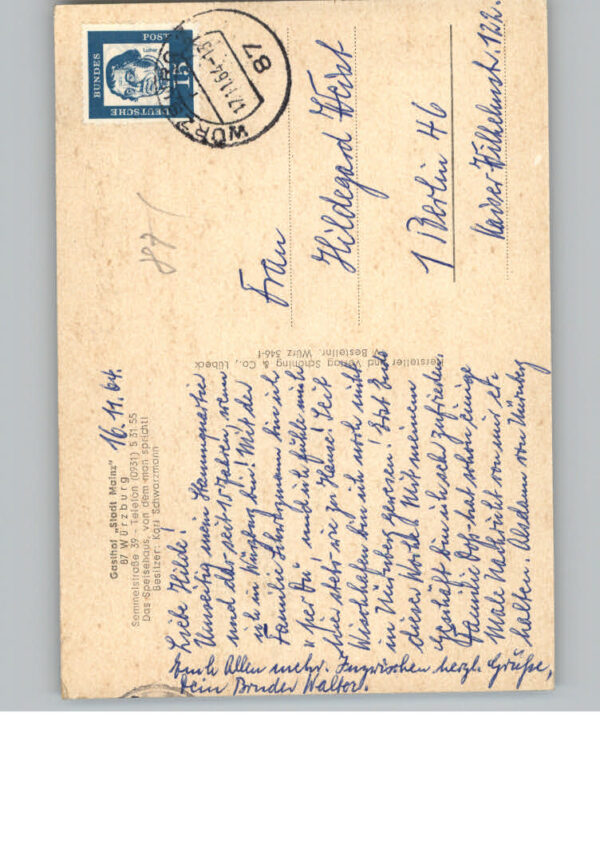 Gasthof „Stadt Mainz"
87 Würzburg
Semmelstraße 39 – Telefon (0931) 5 31 55
Das Speisehaus, von dem man spricht!
Besitzer: Karl Schwarzmann
16.11.64.
Liebe Hilde!
Umseitig mein Stammquartier
und das seit 15 Jahren, wenn
ich in Würzburg bin! Mit der
Familie Schwarzmann bin ich
"per Du" und ich fühle mich
wie zu Hause! Seit
bin ich noch nicht
in Nürnberg gewesen! Erst Ende
dieser Woche! Mit meinem
Geschäft bin ich sehr zufrieden.
Familie hat schon einige
Male Nachricht von mir er-
halten. Alsdann von Nürnberg
Euch Allen mehr. Inzwischen herzl. Grüße,
Dein Bruder Walter.
Hersteller und Verlag Schöning & Co., Lübeck
Bestellnr. Würz 346-1
DEUTSCHE
BUNDES
POST
15
WÜRZBURG
17.11.64-13
87
87
Frau
Hildegard
1 Berlin 46
Kaiser-Wilhelmstr. 122.